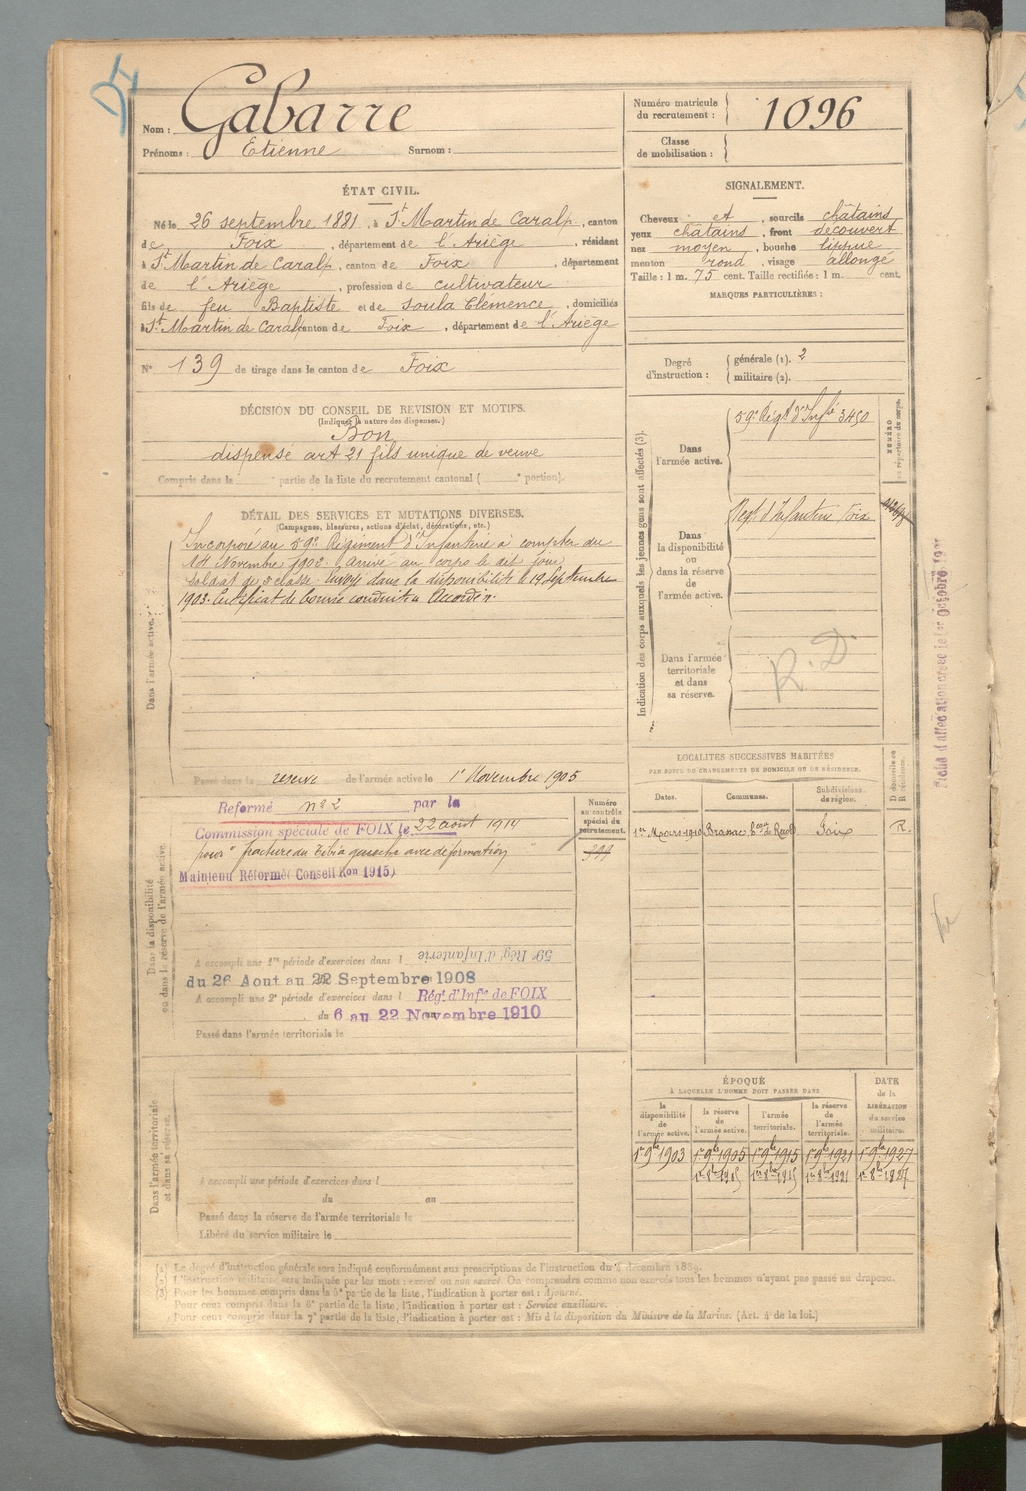 Nom : Gabarre
Prénoms : Etienne Surnom :
Numéro matricule du recrutement : 1096
Classe de mobilisation :
ÉTAT CIVIL.
Né le 26 septembre 1881, à St Martin de Caralp, canton
de Foix, département de l'Ariège, résidant
à St Martin de Caralp, canton de Foix, département
de l'Ariège, profession de cultivateur
fils de feu Baptiste et de Soula Clemence, domiciliés
à St Martin de Caralp canton de Foix, département de l'Ariège
N° 139 de tirage dans le canton de Foix
SIGNALEMENT.
Cheveux et, sourcils châtains
yeux châtains, front découvert
nez moyen, bouche lippue
menton rond, visage allongé
Taille : 1 m. 75 cent. Taille rectifiée : 1 m. cent.
MARQUES PARTICULIÈRES :
Degré d'instruction : générale (1). 2
militaire (2).
DÉCISION DU CONSEIL DE REVISION ET MOTIFS.
(Indiquer la nature des dispenses.)
Bon
dispensé art 21 fils unique de veuve
Compris dans la partie de la liste du recrutement cantonal ( portion).
DÉTAIL DES SERVICES ET MUTATIONS DIVERSES.
(Campagnes, blessures, actions d'éclat, décorations, etc.)
Dans l'armée active.
Incorporé au 59e Régiment d'Infanterie à compter du
14 Novembre 1902. arrivé au corps le dit jour,
soldat de 2e classe. Envoyé dans la disponibilité le 19 Septembre
1903. Certificat de bonne conduite Accordé.
Passé dans la réserve de l'armée active le 1er Novembre 1905
Indication des corps auxquels les jeunes gens sont affectés (3).
NUMÉRO au répertoire du corps.
Dans l'armée active.
59e Régt d'Infie 3450
Dans la disponibilité ou dans la réserve de l'armée active.
Régt d'Infanterie Foix
Dans l'armée territoriale et dans sa réserve.
R. D.
Dans la disponibilité ou dans la réserve de l'armée active.
Réformé n° 2 par la
Commission spéciale de FOIX le 22 août 1914
pour "fracture du tibia gauche avec déformation"
Maintenu Réformé (Conseil Ron 1915)
Numéro au contrôle spécial du recrutement.
A accompli une 1re période d'exercices dans l 59e Rég. d'Infanterie
du 26 Aout au 22 Septembre 1908
A accompli une 2e période d'exercices dans l Régt d'Infie de FOIX
du 6 au 22 Novembre 1910
Passé dans l'armée territoriale le
LOCALITÉS SUCCESSIVES HABITÉES
PAR SUITE DE CHANGEMENTS DE DOMICILE OU DE RÉSIDENCE.
Dates. Communes. Subdivisions de région. D domicile ou R résidence.
1er Mars 1910 Foix R.
Dans l'armée territoriale et dans sa réserve.
A accompli une période d'exercices dans l
du au
Passé dans la réserve de l'armée territoriale le
Libéré du service militaire le
ÉPOQUE
À LAQUELLE L'HOMME DOIT PASSER DANS
la disponibilité de l'armée active. la réserve de l'armée active. l'armée territoriale. la réserve de l'armée territoriale.
DATE de la LIBÉRATION du service militaire.
1er 9bre 1903 1er 9bre 1905 1er 9bre 1915 1er 9bre 1921 1er 9bre 1927
(1) Le degré d'instruction générale sera indiqué conformément aux prescriptions de l'instruction du 4 décembre 1889.
(2) L'instruction militaire sera indiquée par les mots : exercé ou non exercé. On comprendra comme non exercés tous les hommes n'ayant pas passé au drapeau.
(3) Pour les hommes compris dans la 5e partie de la liste, l'indication à porter est : Ajourné.
Pour ceux compris dans la 6e partie de la liste, l'indication à porter est : Service auxiliaire.
Pour ceux compris dans la 7e partie de la liste, l'indication à porter est : Mis à la disposition du Ministre de la Marine. (Art. 4 de la loi.)